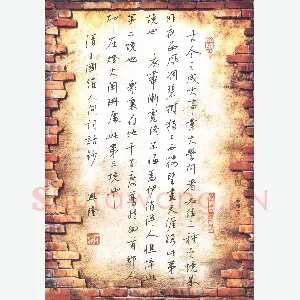 古今之成大事業大學問者必經三種之境界
昨夜西風凋碧樹獨上西樓望盡天涯路此第
一境也衣帶漸寬終不悔為伊消得人憔悴此
第二境也眾裏尋他千百度驀然回首那人
卻在燈火闌珊處此第三境也
清王國維人間詞話鈔